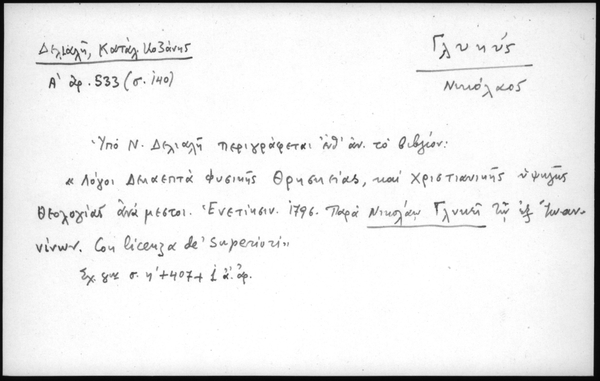 Δελιαλῆ, Κατάλ. Κοζάνης
Α' ἀρ. 533 (σ. 140)
Γλυκύς
Νικόλαος
Ὑπὸ Ν. Δελιαλῆ περιγράφεται ἐνθ' ἀν. τὸ βιβλίον:
« Λόγοι Δεκαεπτὰ Φυσικῆς Θρησκείας, καὶ Χριστιανικῆς ὑψηλῆς
Θεολογίας ἀνάμεστοι. Ἐνετίῃσιν. 1796. Παρὰ Νικολάῳ Γλυκεῖ τῷ ἐξ Ἰωαν-
νίνων. Con licenza de' Superiori »
Σχ. σ. η' + 407 + 1 ἀ. ἀρ.